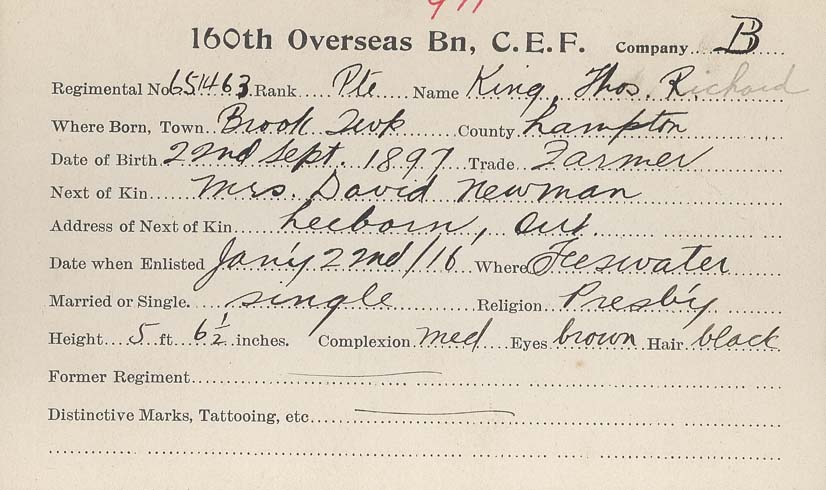 160th Overseas Bn, C.E.F. Company B
Regimental No 651463 Rank Pte Name King, Thos. R. Richard
Where Born, Town Brook Twp County Lampton
Date of Birth 22nd Sept. 1897 Trade Farmer
Next of Kin Mrs. David Newman
Address of Next of Kin Leeborn, Ont.
Date when Enlisted Jan'y 22nd/16 Where Teeswater
Married or Single. single Religion Presby
Height 5 ft 6½ inches. Complexion med Eyes brown Hair black
Former Regiment
Distinctive Marks, Tattooing, etc